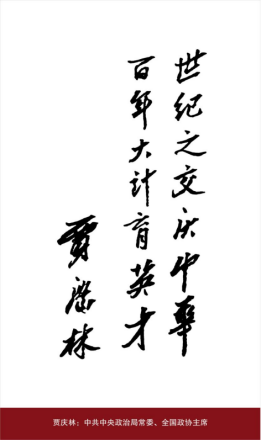 世纪之交庆中华
百年大计育英才
贾庆林
贾庆林：中共中央政治局常委、全国政协主席